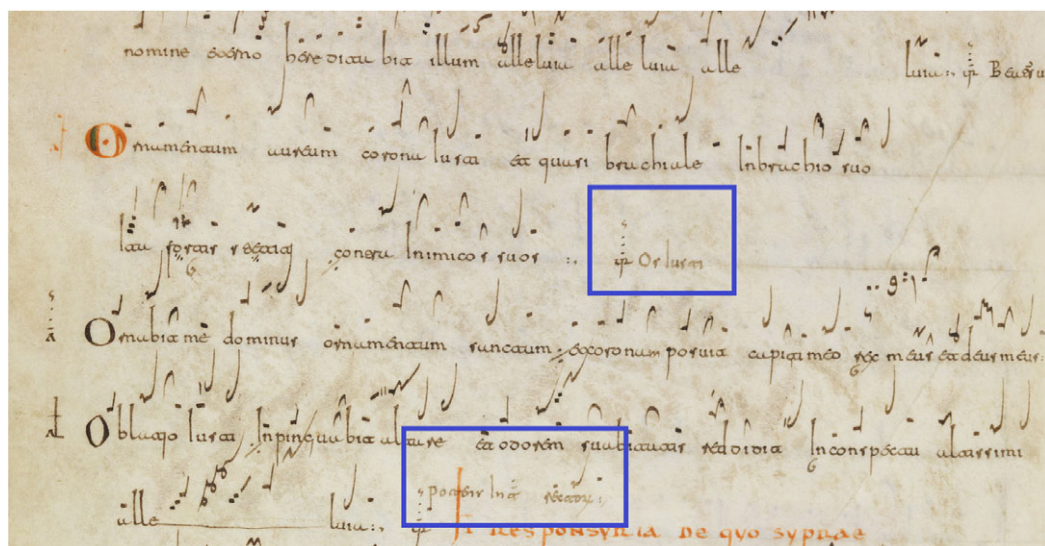 nomine eterno hereditabit illum alleluia alleluia alle luia
Ornamentum aureum corona Iusti et quasi brachiale Inbrachio suo
contra Inimicos suos :. Os Iusti
Ornabit me dominus ornamentum sanctum et coronam posuit capiti meo rex meus et deus meus
Oblatio Iusti Inpinguabit altare et odorem suabitatis reddidit Inconspectu altissimi
alle luia
RESPONSURIA DE QUO SUPRAE